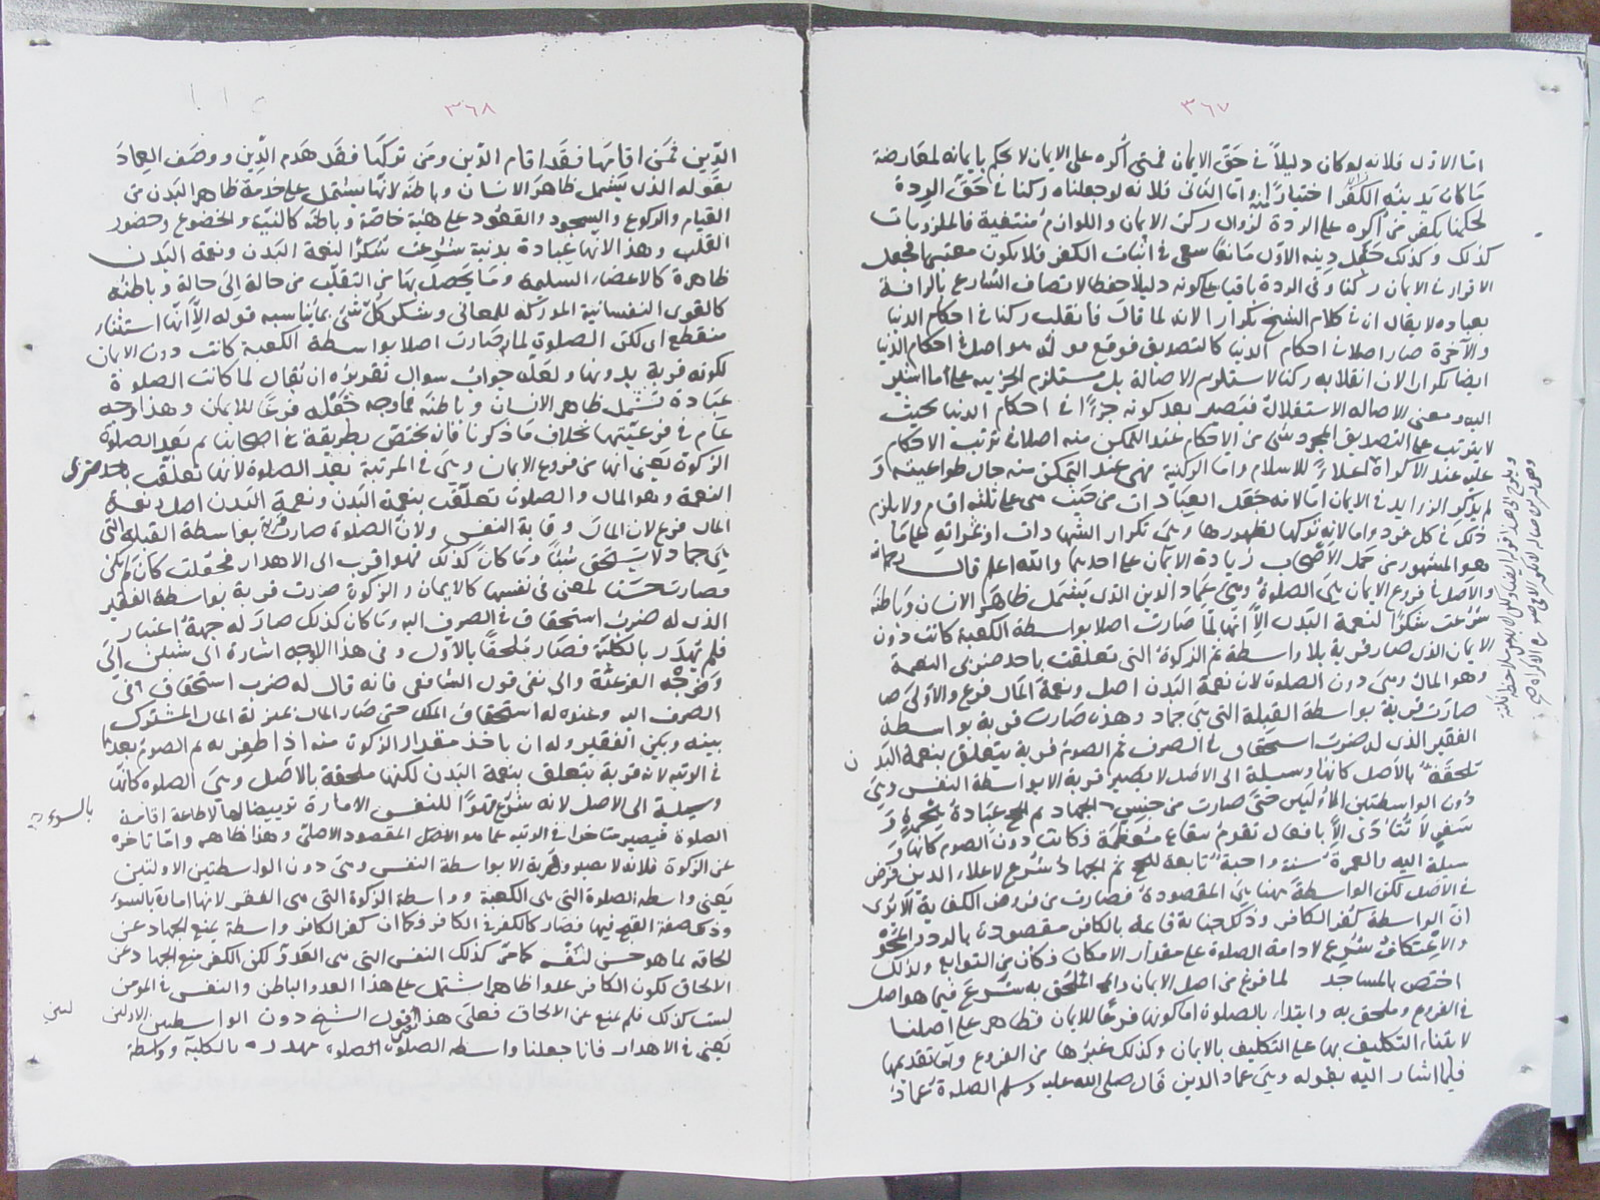 ٣٦٧
اما الاول فلانه لو كان دليلاً في حق الايمان فمتى أكره على الايمان لا يحكم بايمانه لمعارضة
ما كان يدينه الكفر اختيارا واما الثاني فلانه لو جعلناه ركنا في حق الردة
لحكمنا بكفر من أكره على الردة لزوال ركن الايمان واللوازم منتفية فالملزومات
كذلك وكذلك جعل دينه الاول مانعا سعى في اثبات الكفر فلا يكون معتبرا فجعل
الاقرار في الايمان ركنا وفى الردة باقيا على كونه دليلا حفظا لاتصاف الشارع بالرأفة
بعباده لا يقال ان في كلام الشيخ تكرارا لانه لما قال فانقلب ركنا في احكام الدنيا
والآخرة صار اصلا في احكام الدنيا كالتصديق فوقع قوله هو اصل في احكام الدنيا
ايضا تكرارا لان انقلابه ركنا لا يستلزم الاصالة بل يستلزم الجزئية على ما اشير
اليه ومعنى الاصاله الاستقلال فيصير بعد كونه جزءًا في احكام الدنيا بحيث
لا يترتب على التصديق المجرد شئ من الاحكام عند التمكن منه اصلا في ترتب الاحكام
عليه عند الاكراه اعلاءً للاسلام واما الركنية فهى عند التمكن منه حال طواعيته و
لم يذكر الزوايد في الايمان اما لانه جعل العبادات من حيث هي على ثلثة اقسام ولا يلزم
ذلك في كل فرد واما لانه تركها لظهورها وهى تكرار الشهادات او ثمراته على ما
هو المشهور من حمل الاصحاب زيادة الايمان على احديهما والله اعلم قال رحمه الله
والاصل في فروع الايمان هى الصلوة وهى عماد الدين الذى يشمل ظاهر الانسان وباطنه
شرعت شكرًا لنعمة البدن الا انها لما صارت اصلا بواسطة الكعبة كانت دون
الايمان الذى صار قربة بلا واسطة ثم الزكوة التى تعلقت باحد ضربى النعمة
وهو المال وهى دون الصلوة لان نعمة البدن اصل ونعمة المال فرع والاولى صا
صارت قربة بواسطة القبلة التى هى جماد وهذه صارت قربة بواسطة
الفقير الذى له ضرب استحقاق في الصرف ثم الصوم قربة يتعلق بنعمة البدن
ملحقة بالاصل كانها وسيلة الى الاصل لا يصير قربة الا بواسطة النفس وهى
دون الواسطتين الاوليين حتى صارت من جنس الجهاد ثم الحج عبادة هجرة و
سفر لا تتأدى الا بافعال تقوم ببقاع معظمة فكانت دون الصوم كانها و
سيلة اليه والعمرة سنة واجبة تابعة للحج ثم الجهاد شرع لاعلاء الدين فرض
في الاصل لكن الواسطة ههنا هى المقصودة فصارت من فروض الكفاية الا ترى
ان الواسطة كفر الكافر وذلك جناية قائمة بالكافر مقصودة بالرد والمحو
والاعتكاف شرع لادامة الصلوة على مقدار الامكان فكان من التوابع ولذلك
اختص بالمساجد لما فرغ من اصل الايمان والملحق به شرع فيما هو اصل
في الفروع وملحق به وابتداء بالصلوة اما كونها فرعًا للايمان فظاهر على اصلنا
لابتناء التكليف بها على التكليف بالايمان وكذلك غيرها من الفروع واما تقديمها
فلما اشار اليه بقوله وهى عماد الدين قال صلى الله عليه وسلم الصلوة عماد
٣٦٨
الدين فمن اقامها فقد اقام الدين ومن تركها فقد هدم الدين ووصف العماد
بقوله الذى يشمل ظاهر الانسان وباطنه لانها يشتمل على خدمة ظاهر البدن من
القيام والركوع والسجود والقعود على هيئة خاصّة وباطنه كالنية والخضوع وحضور
القلب وهذا لانها عبادة بدنية شرعت شكرًا لنعمة البدن ونعمة البدن
ظاهرة كالاعضاء السليمة وما يحصل بها من التقلب من حالة الى حالة وباطنه
كالقوى النفسانية المدركة للمعانى وشكر كل شئ بما يناسبه قوله الا انها استثناء
منقطع اى لكن الصلوة لما صارت اصلا بواسطة الكعبة كانت دون الايمان
لكونه قربة بدونها ولعله جواب سؤال تقديره ان يقال لما كانت الصلوة
عبادة تشتمل ظاهر الانسان وباطنه فما وجه جعله فرعًا للايمان وهذا وجه
عام في فرعيتها بخلاف ما ذكرنا فانه يختص بطريقة في اصحابنا ثم بعد الصلوة
الزكوة يعنى انها من فروع الايمان وهى في المرتبة بعد الصلوة لانها تعلقت باحد ضربى
النعمة وهو المال والصلوة تعلقت بنعمة البدن ونعمة البدن اصل ونعمة
المال فرع لان المال وقاية النفس ولان الصلوة صارت قربة بواسطة القبلة التى
هى جماد لا يستحق شيئا وما كان كذلك فهو اقرب الى الاهدار فجعلت كان لم تكن
فصارت حسنا لمعنى في نفسها كالايمان والزكوة صارت قربة بواسطة الفقير
الذى له ضرب استحقاق في الصرف اليه وما كان كذلك صار له جهة اعتبار
فلم يهدر بالكلية فصار ملحقًا بالاول وفى هذا الوجه اشارة الى شيئين الى
وجه الفرعية والى نفى قول الشافعى فانه قال له ضرب استحقاق اى في
الصرف اليه وعنده له استحقاق الملك حتى صار المال بمنزلة المال المشترك
بينه وبين الفقير وله ان ياخذ مقدار الزكوة منه اذا ظفر به ثم الصوم بعدها
في الرتبة لانه قربة يتعلق بنعمة البدن لكنها ملحقة بالاصل وهى الصلوة كانها
وسيلة الى الاصل لانه شرع قهرًا للنفس الامارة ترييضا لها لاطاعة اقامة
الصلوة فيصير متاخرا في الرتبة عما هو الاصل المقصود الاصلى وهذا ظاهر واما تاخره
عن الزكوة فلانه لا يصير قربة الا بواسطة النفس وهى دون الواسطتين الاولتين
يعنى واسطة الصلوة التى هى الكعبة وواسطة الزكوة التى هى الفقر لانها امارة بالسوء
وذى صفة القبح فيها فصار كالكفر في الكافر فكما ان كفر الكافر واسطة يمنع الجهاد عن
لحاقه لما هو حسن لنفسه كما مر كذلك النفس التى هى العدو لكن الكفر منع الجهاد عن
الالحاق لكون الكافر عدوا ظاهرا اشتمل على هذا العدو الباطن والنفس في المؤمن
ليست كذلك فلم يمنع عن الالحاق فعلى هذا قول الشيخ دون الواسطتين الاولين
يعنى في الاهدار فانا جعلنا واسطة الصلوة مهدرة بالكلية وواسطة
بالسوء